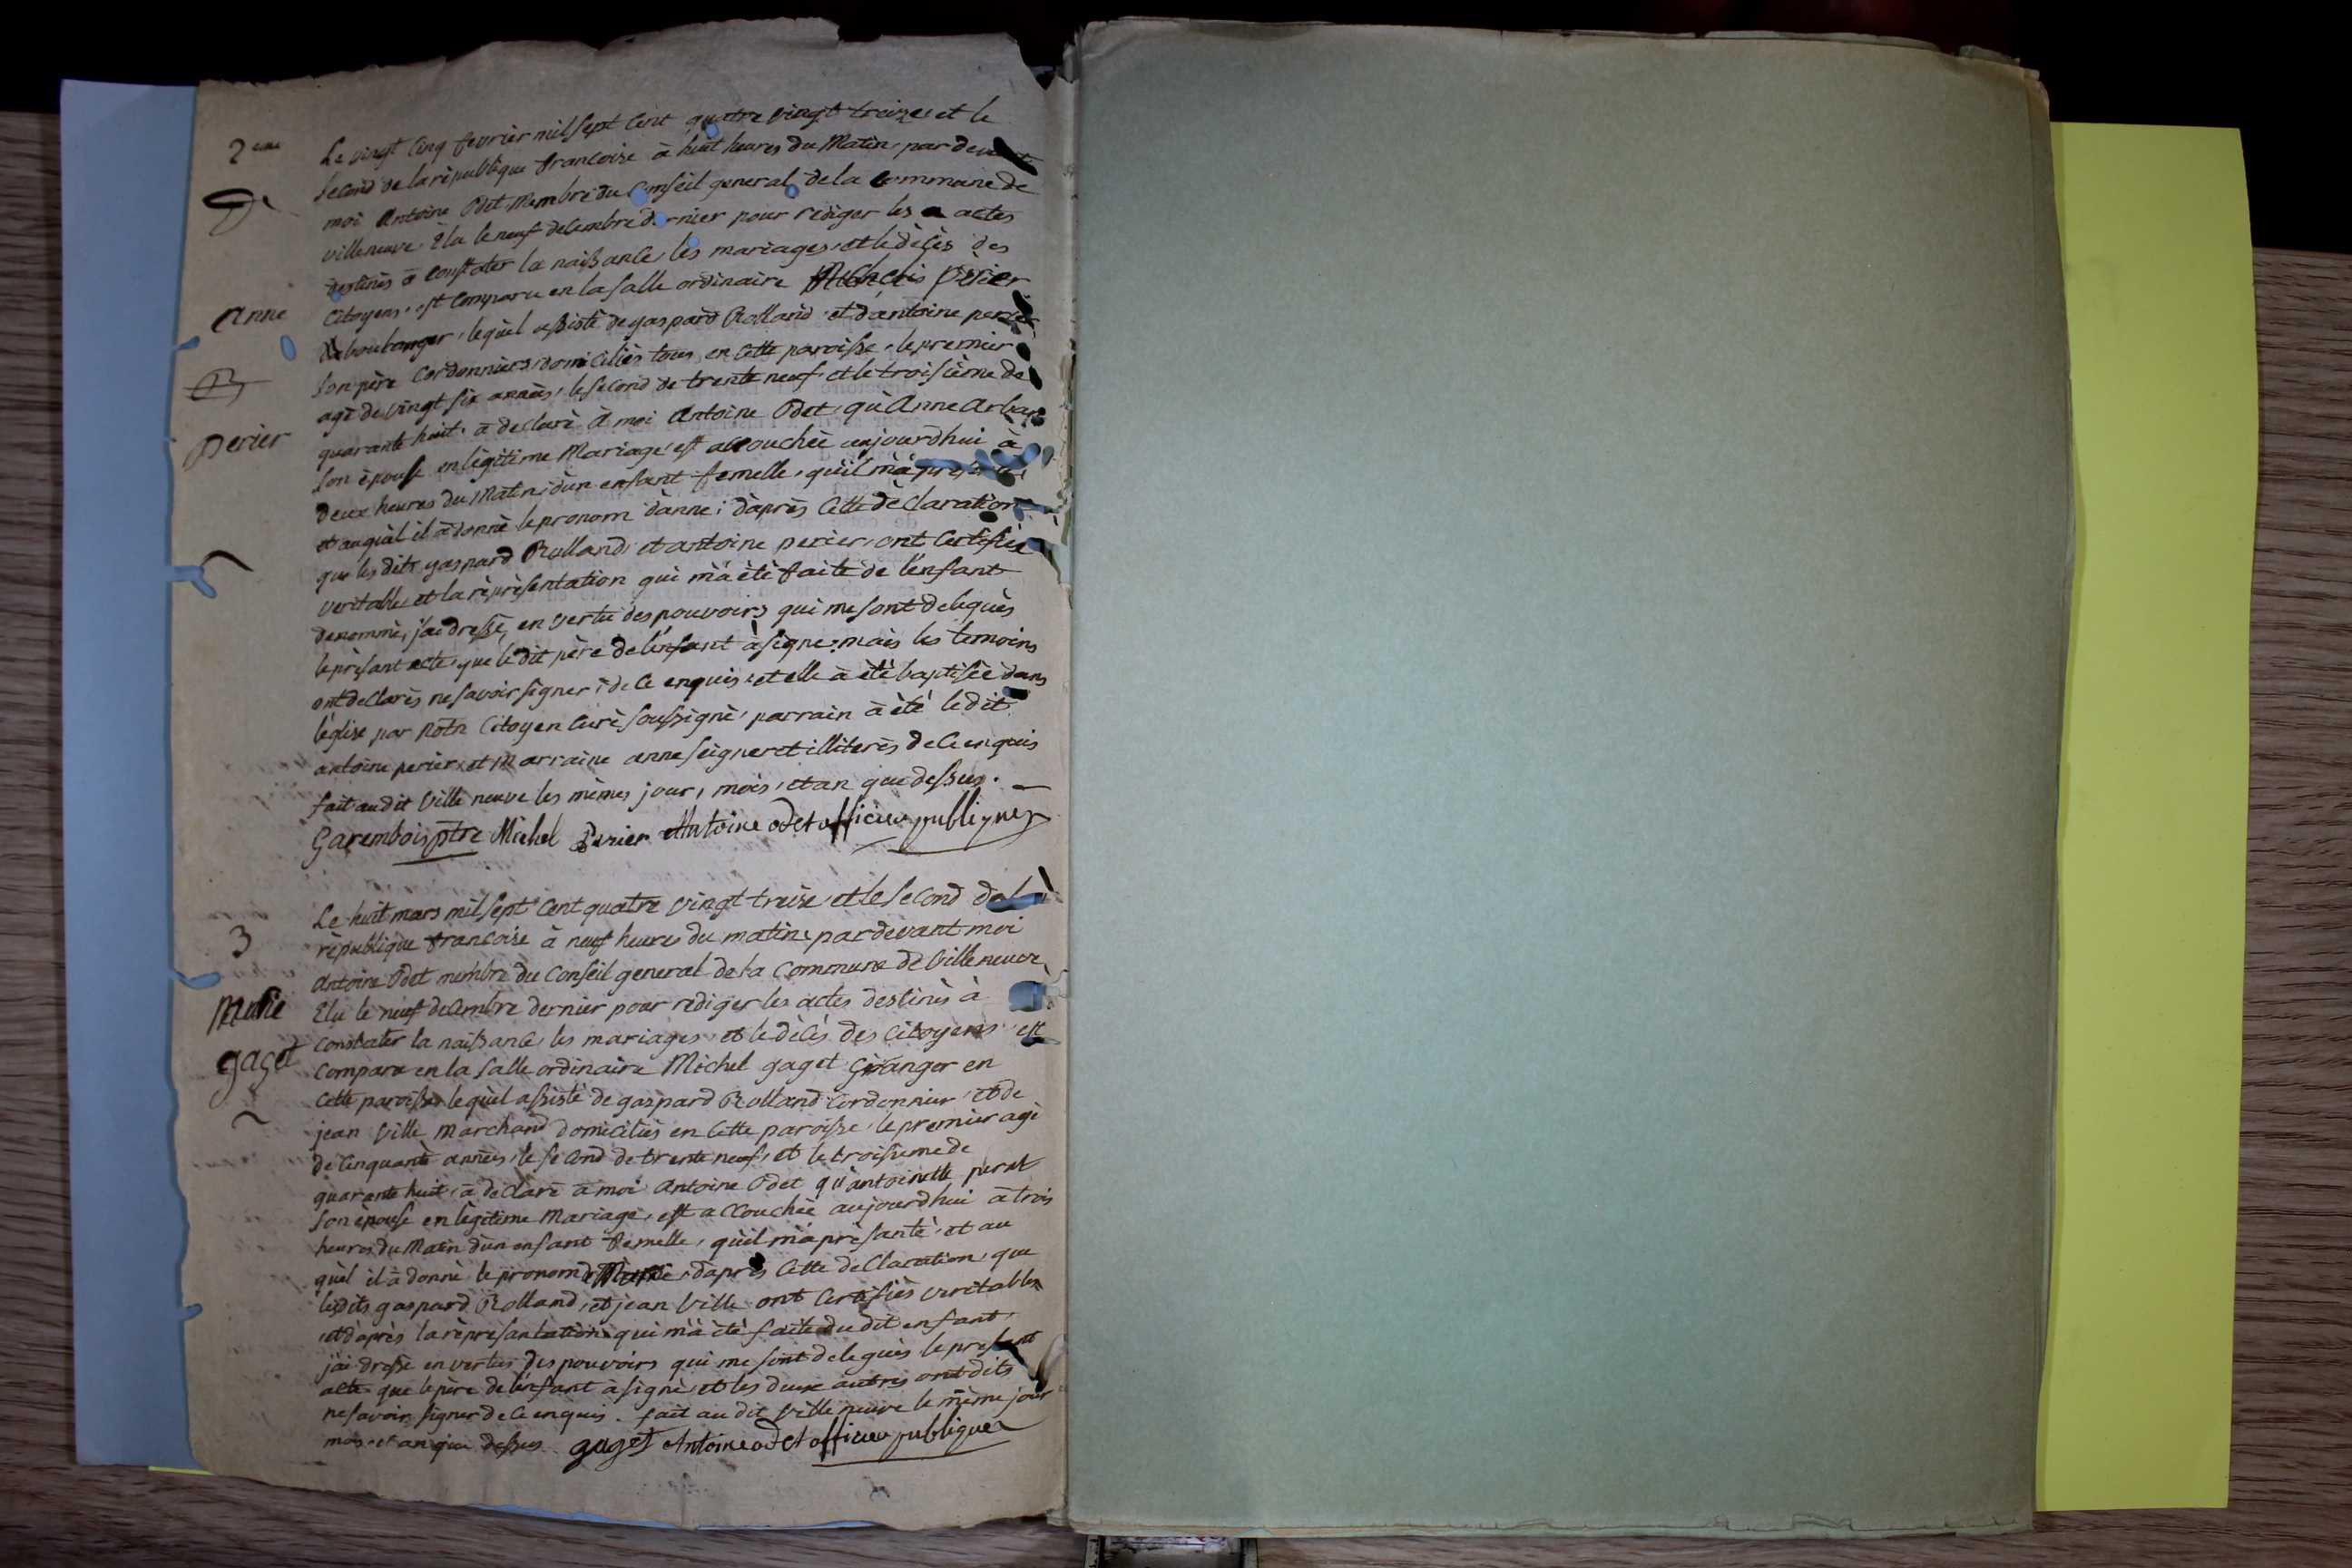 2eme
Le vingt cinq fevrier mil sept cent quatre vingt treize et le
second de la rèpublique francoise à huit heures du Matin par devant
moi Antoine Odet Membre du Conseil general de la commune de
villeneuve Elu le neuf decembre dernier pour rèdiger les actes
destinés à constater la naissance les mariages et le dècès des
Citoyens est comparu en la salle ordinaire Perier
boulanger lequèl assistè de gaspard Rolland et d'antoine perier
son père cordonniers domiciliès tous en cette paroisse le premier
agè de vingt six annèes le second de trente neuf et le troisième de
quarante huit à declarè à moi Antoine Odet qu'Anne
son èpouse en lègitime Mariage est accouchèe aujourdhui à
deux heures du Matin d'un enfant femelle qu'il m'a
et auquèl il à donnè le pronom d'anne d'après Cette dèclaration
que les dits gaspard Rolland et antoine perier ont Certifièe
veritable et la rèprèsentation qui m'à ètè faite de l'enfant
denommè j'ai dressè en vertu des pouvoirs qui me sont delequès
le prèsant acte que le dit père de l'enfant à signè mais les temoins
ont declarès ne savoir signer de ce enquis et elle à ètè baptisèe dans
l'èglise par notre Citoyen Curè soussignè parrain à ètè ledit
antoine perier et Marraine anne seigneret illiterès de ce enquis
fait au dit Ville neuve les mèmes jour, mois et an que dessus.
Garembois ptre Michel Perier Antoine odet officier publique
anne
perier
3
Marie
gaget
Le huit mars mil sept cent quatre vingt treize et le second de la
rèpublique francoise à neuf heures du matin par devant moi
Antoine Odet membre du Conseil general de la Commune de Villeneuve
Elu le neuf decembre dernier pour rèdiger les actes destinès à
constater la naissance les mariages et le dècès des Citoyens est
comparu en la salle ordinaire Michel gaget Granger en
cette paroisse lequèl assistè de gaspard Rolland Cordonnier et de
jean Ville marchand domiciliès en cette paroisse le premier agè
de cinquante annèes le second de trente neuf et le troisieme de
quarante huit à dèclarè à moi Antoine Odet qu'antoinette
son èpouse en lègitime Mariage est accouchèe aujourdhui à trois
heures du Matin d'un enfant femelle qu'il m'à prèsantè et au
quèl il à donnè le pronom d'après cette declaration que
lesdits gaspard Rolland et jean Ville ont Certifiès veritable
et d'après la rèprèsantation qui m'à ètè faite du dit enfant
j'ai dressè en vertus des pouvoirs qui me sont deleguès le presant
acte que le père de l'enfant à signè et les deux autres ont dits
ne savoir signer de ce enquis. fait au dit Ville neuve le même jour
mois et an que dessus gaget Antoine odet officier publique